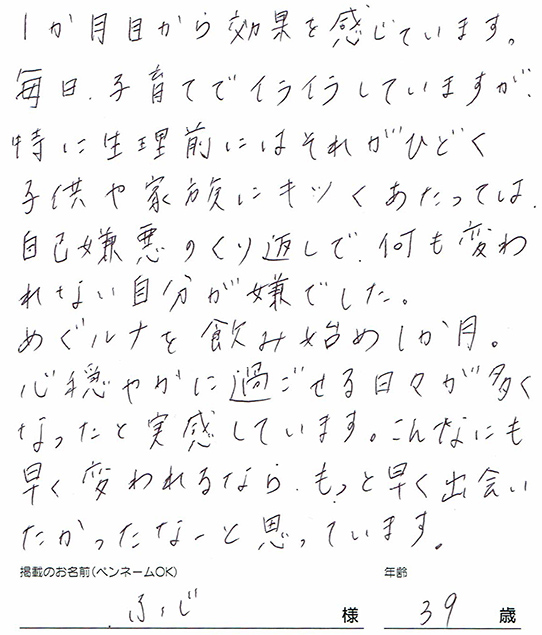 1か月目から効果を感じています。
毎日、子育てでイライラしていますが、
特に生理前にはそれがひどく
子供や家族にキツくあたっては、
自己嫌悪のくり返しで、何も変わ
れない自分が嫌でした。
めぐルナを飲み始め1か月。
心穏やかに過ごせる日々が多く
なったと実感しています。こんなにも
早く変われるなら、もっと早く出会い
たかったなーと思っています。
掲載のお名前(ペンネームOK) 年齢
ふじ 様 39 歳